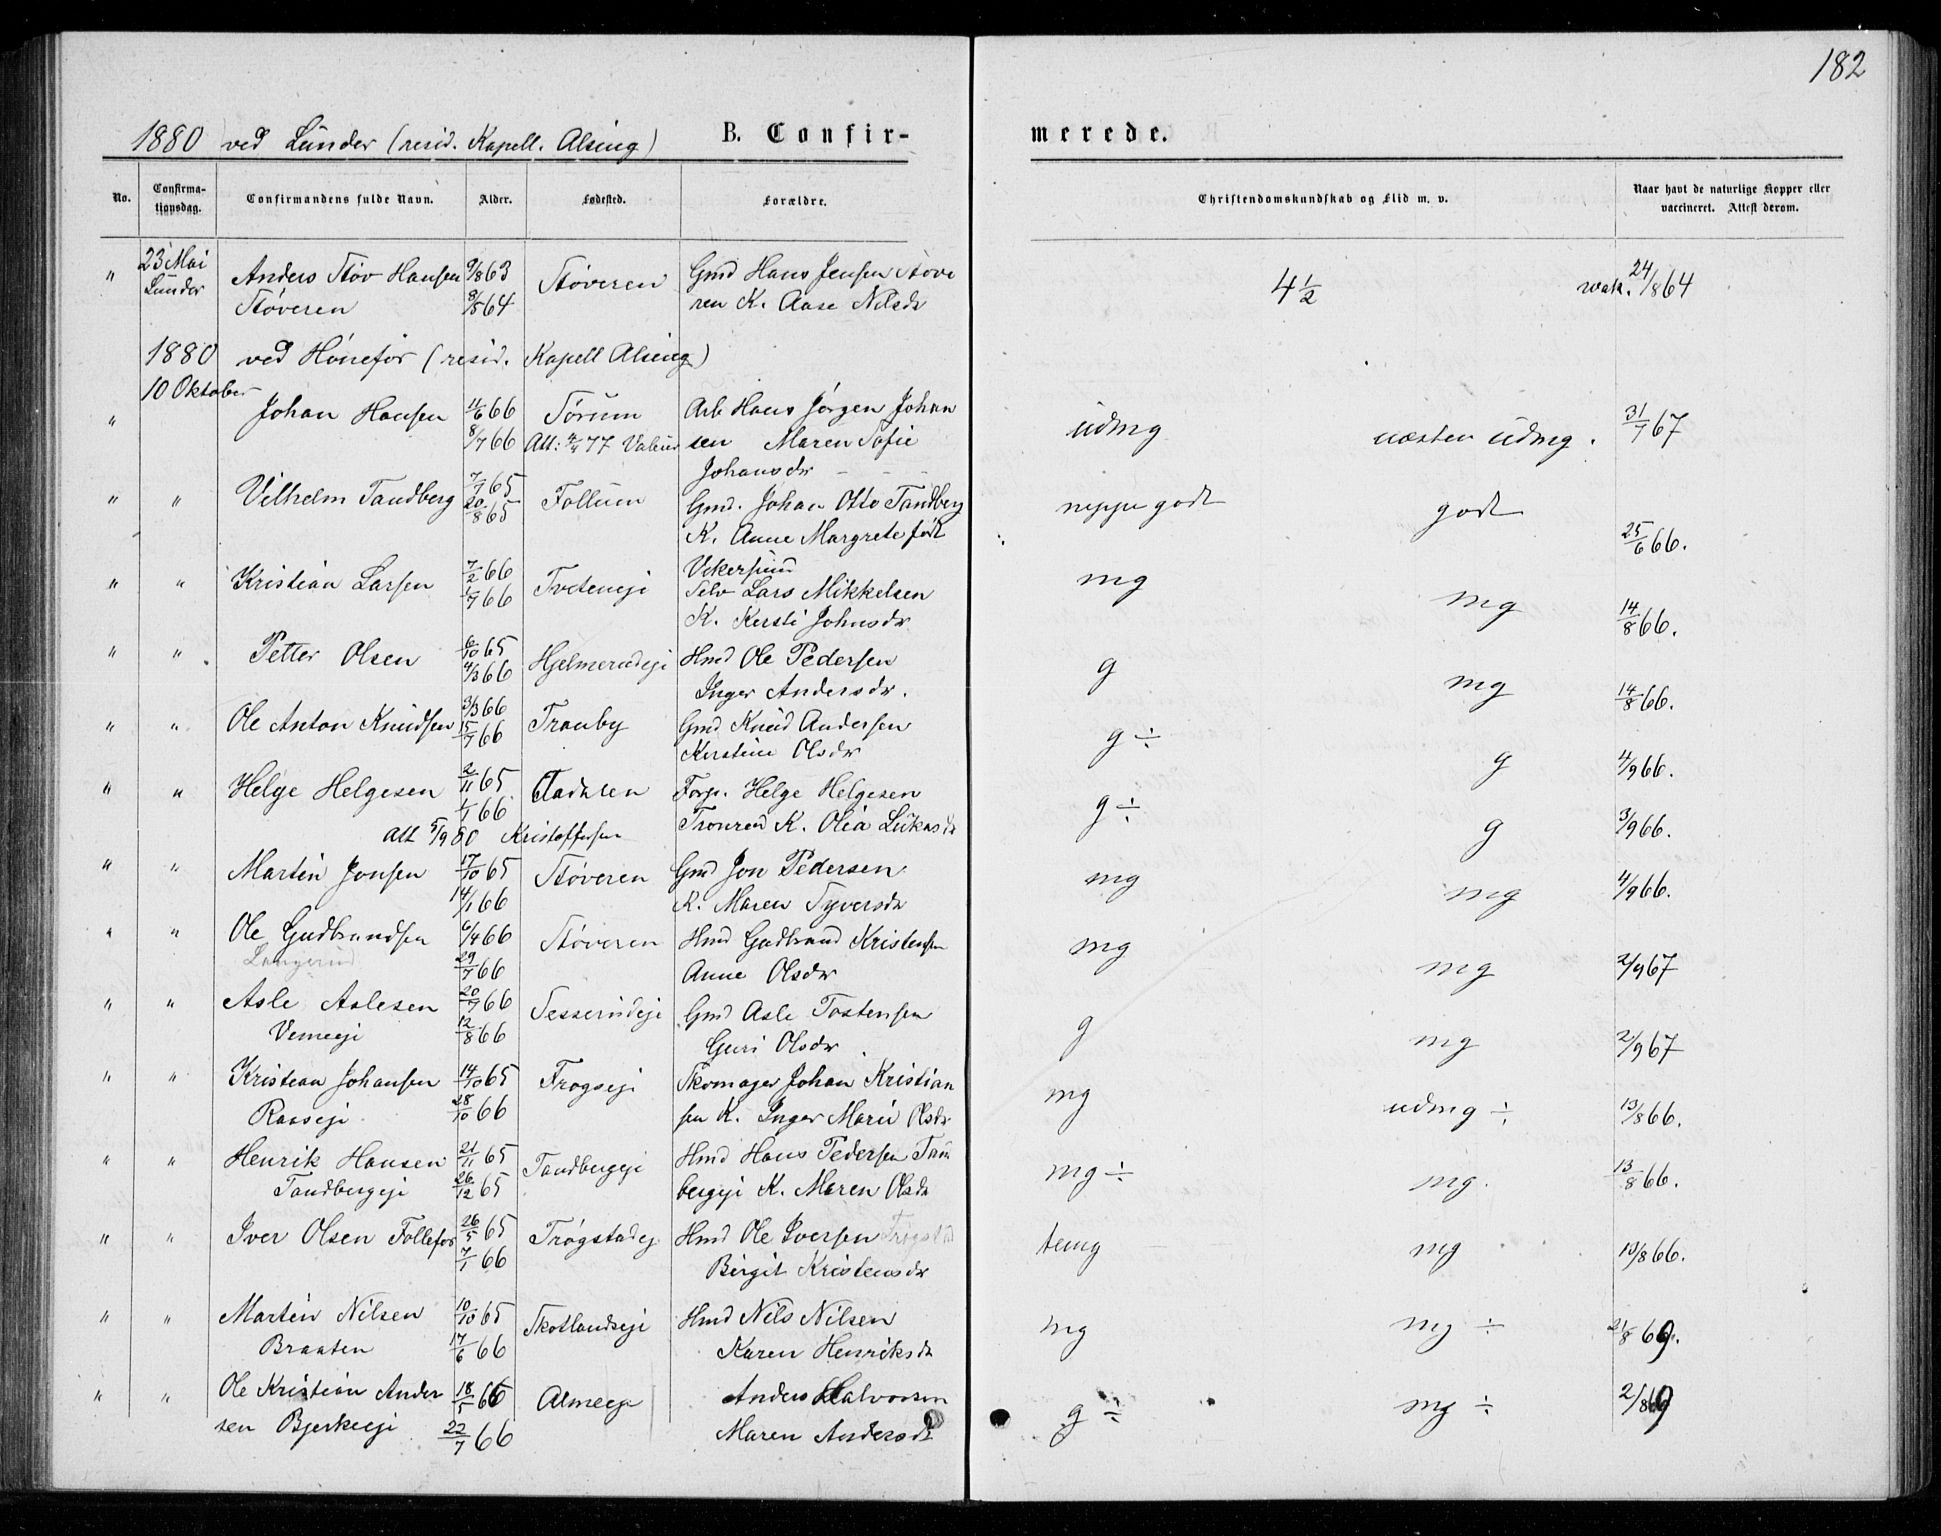 182
1880 ved Lunder (resid. Kapell. Alsing)
B. Confirmerede.
No. Confirmationsdag. Confirmandens fulde Navn. Alder. Fødested. Forældre. Christendomskundskab og Flid m. v. Naar havt de naturlige Kopper eller vaccineret. Attest derom.
" 23 Mai Anders Støv Hansen 9/8 63 Støveren Gmd Hans Jensen Støve 4 1/2 vak. 24/8 64
Lunder Støveren 9/8 64 ren K. Aase Nilsdr
1880 ved Hønefos (resid. Kapell Alsing)
10 Oktober
" Johan Hansen 11/6 66 Sørum Arb Hans Jørgen Johan udmg næsten udmg. 31/7 67
8/7 66 Att: 4/4 77 sen Maren Sofie
Johansdr - - -
" " Vilhelm Tandberg 7/7 65 Follum Gmd. Johan Otto Tandberg neppe godt godt 25/6 66.
20/8 65 K. Anne Margrete født
Vikersund
" " Kristian Larsen 7/2 66 Tveteneje Selv Lars Mikkelsen mg mg 14/8 66.
1/7 66 K. Kersti Johnsdr
" " Petter Olsen 6/10 65 Hjelmerudeje Hmd Ole Pedersen g mg 14/8 66.
4/3 66 Inger Andersdr.
" " Ole Anton Knudsen 3/3 66 Tranby Gmd Knud Andersen g ÷ g 4/9 66.
15/7 66 Kirstine Olsdr
" " Helge Helgesen 2/11 65 Forp. Helge Helgesen g ÷ g 3/9 66.
1/1 66 Tronrud K. Olia Lukasdr
Att 5/9 80 Kristoffersen
" " Martin Jonsen 17/10 65 Støveren Gmd Jon Pedersen mg mg 4/9 66.
14/1 66 K. Maren Syversdr
" " Ole Gudbrandsen 6/4 66 Støveren Hmd Gudbrand Kristensen mg mg 2/9 67
Langerud 29/7 66 Anne Olsdr
" " Asle Aslesen 20/7 66 Sesserudeje Gmd Asle Tostensen g mg 2/9 67
Vemeeje 12/8 66 Guri Olsdr
" " Kristian Johansen 14/10 65 Frogseje Skomager Johan Kristian mg udmg ÷ 13/8 66.
Raaseje 28/10 66 sen K. Inger Marie Olsdr
" " Henrik Hansen 21/11 65 Tandbergeje Hmd Hans Pedersen Tan mg ÷ mg. 13/8 66.
Tandbergeje 26/12 65 bergeje K. Maren Olsdr
" " Iver Olsen Follefos 26/5 65 Trøgstadej Hmd Ole Iversen Trøgstad temg mg 13/8 66.
7/1 66 Birgit Kristensdr
" " Martin Nilsen 10/10 65 Skotlandseje Hmd Nils Nilsen mg mg ÷ 21/8 69.
Braaten 17/6 66 Karen Henriksdr
" " Ole Kristian Ander 18/5 66 Almeeje Anders Halvorsen g ÷ mg ÷ 2/8 69
sen Bjerkeeje 22/7 66 Maren Andersdr